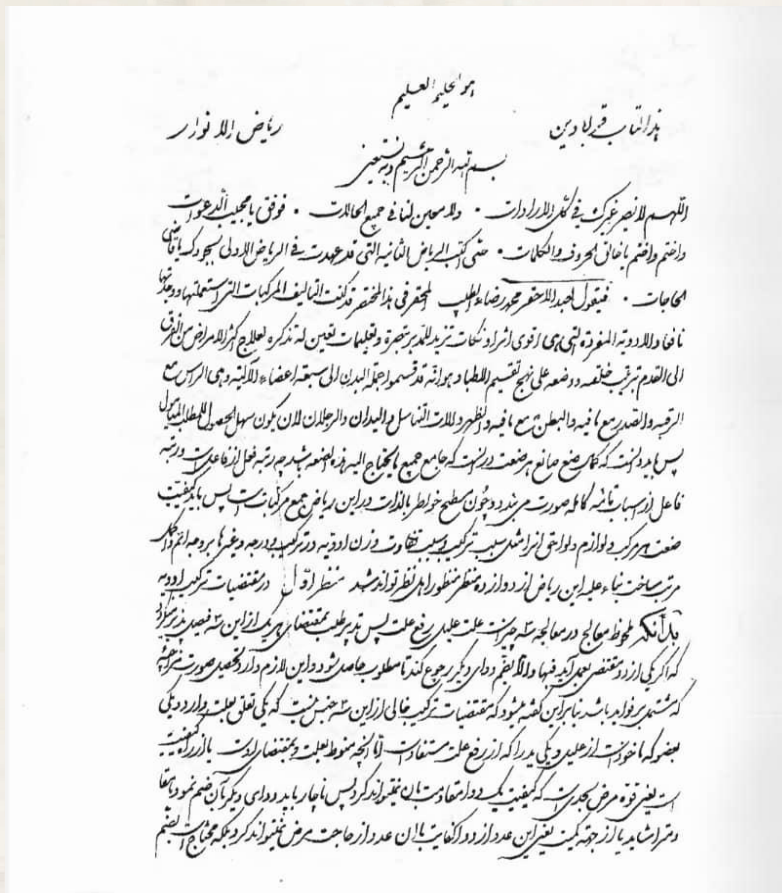 هو الحکیم العلیم
هذا کتاب قرابادین ریاض الانوار
بسم الله الرحمن الرحیم وبه نستعین
اللهم لا نصیر غیرک فی کل الارادات ولا معین لنا فی جمیع الحالات فوفق یا مجیب الدعوات
واختم یا خالق الحروف والکلمات حتی اکتب الریاض الثانیه التی قد عهدت فی الریاض الاولی بجودک یا قاضی
الحاجات فیقول العبد الاحقر محمد رضاء الطبیب المحقر فی هذا المختصر قد کنت التالیف المرکبات التی استعملتها ووجدتها
نافعا والادویة المفردة التی هی اقوی اثرا ونکات تزید للمدبر تبصرة وتعلیمات تعین له تذکره لعلاج اکثر الامراض من الفرق
الی القدم بترتیب خلقه ووضعه علی نهج تقسیم الاطباء وهو انه قد قسموا جملة البدن الی سبعة اعضاء الآلیة وهی الراس مع
الرقبه والصدر مع ما فیه والبطن مع ما فیه والظهر والات التناسل والیدان والرجلان لان یکون سهل الحصول للمطلب المامول
پس باید دانست که کمال صنع صانع هر صنعت در آنست که جامع جمیع ما یحتاج الیه هذه الصنعه باشد چه رتبه فعل از فاعل است ورتبه
فاعل از اسباب تامه کامله صورت می بندد وچون مطمح خاطر بالذات در این ریاض جمع مرکبات است پس باید کیفیت
صنعت هر مرکب ولوازم ولواحق آنرا مثل سبب ترکیب وسبب تفاوت وزن ادویه در ترکیب ودرجه وغیرها بر وجه اتم واکمل
مرتب ساخت بناء علیه این ریاض از دوازده منظر منظور اهل نظر تواند شد منظر اول در مقتضیات ترکیب ادویه
بدانکه ملحوظ معالج در معالجه سه چیز است علت علیل رفع علت پس تدبیر طلب بمقتضای هر یک از این سه فیصل پذیر میگردد
که اگر یکی از دو مقتضی بعمل آید فبها والا بضم دوای دیگر رجوع کند تا مطلوب حاصل شود واین لازم دارد تحصیل صورت ترکیبیه
که مشتمل بر فواید باشد بنا بر این گفته میشود که مقتضیات ترکیب خالی از این سه جنس نیست که یکی تعلق بعلت دارد ودیگری
بعضو که ماخوذ است از علیل ودیگر بدرا که از رفع علت مستفاد است اما آنچه منوط بعلت وبمقتضای اوست یا از راه کیفیت
است یعنی قوة مرض بحدی است که کیفیت یک دوا مقاومت با آن نمیتواند کرد پس ناچار باید دوای دیگر با آن ضم نمود
یا از جهة کمیت یعنی این عدد از دوا کفایت با آن عدد از حاجت مرض نمیتواند کرد بلکه محتاج است بضم